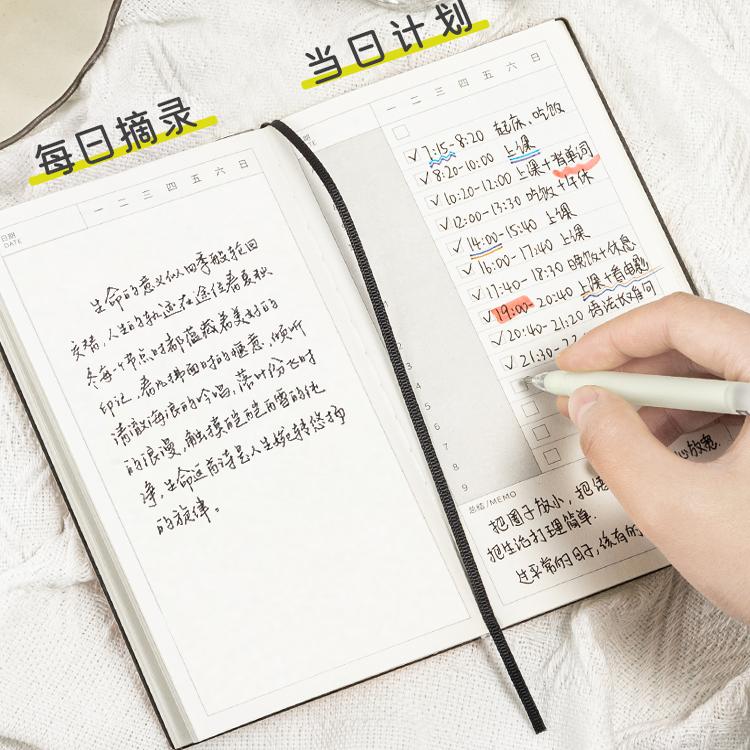 每日摘录
当日计划
日期
DATE
一 二 三 四 五 六 日
生命的意义似四季般轮回
交替,人生的轨迹在途径春夏秋
冬每一个节点时都蕴藏着美好的
印记,春风拂面时的惬意,倾听
清澈海浪的吟唱,落叶纷飞时
的浪漫,触摸皑皑白雪的纯
净,生命这首诗是人生婉转悠扬
的旋律。
期
一 二 三 四 五 六 日
✓ 7:15-8:20 起床、吃饭
✓ 8:20-10:00 上课
✓ 10:20-12:00 上课+背单词
✓ 12:00-13:30 吃饭+午休
✓ 14:00-15:40 上课
✓ 16:00-17:40 上课
✓ 17:40-18:30 晚饭+休息
✓ 19:00-20:40 上课+看电影
✓ 20:40-21:20 语法
✓ 21:30-22
1
2
3
4
5
6
7
8
9
总结/MEMO
心放宽.
把圈子放小,把
把生活打理简单.
过平常的日子,该有的